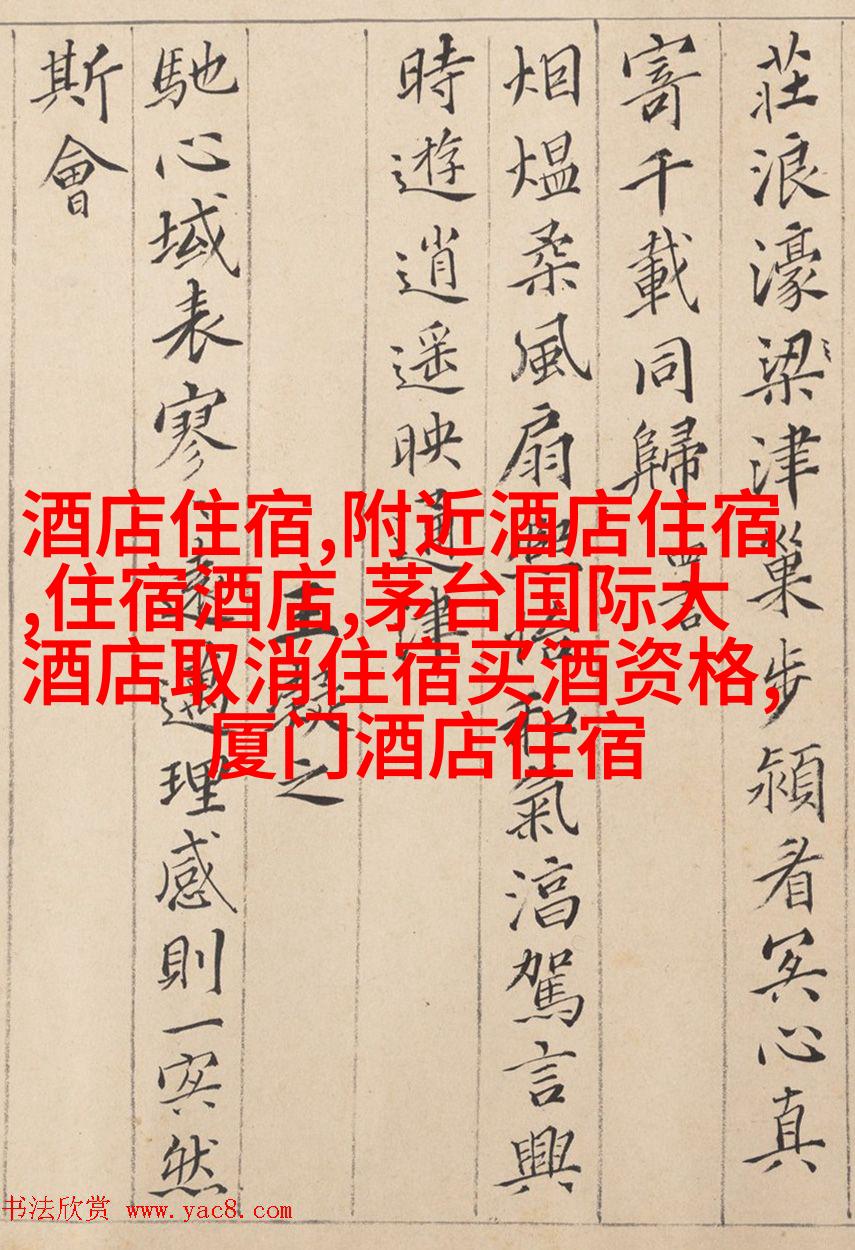 莊浪濠梁津巢步潁看冥心真
寄千載同歸
烟熅柔風扇熙怡和氣淳駕言興
時遊逍遥映通津
王之
馳心域表寥遠邁理感則一冥然
斯會
酒店住宿,附近酒店住宿
,住宿酒店,茅台国际大
酒店取消住宿买酒资格,
厦门酒店住宿
书法欣赏 www.yac8.com